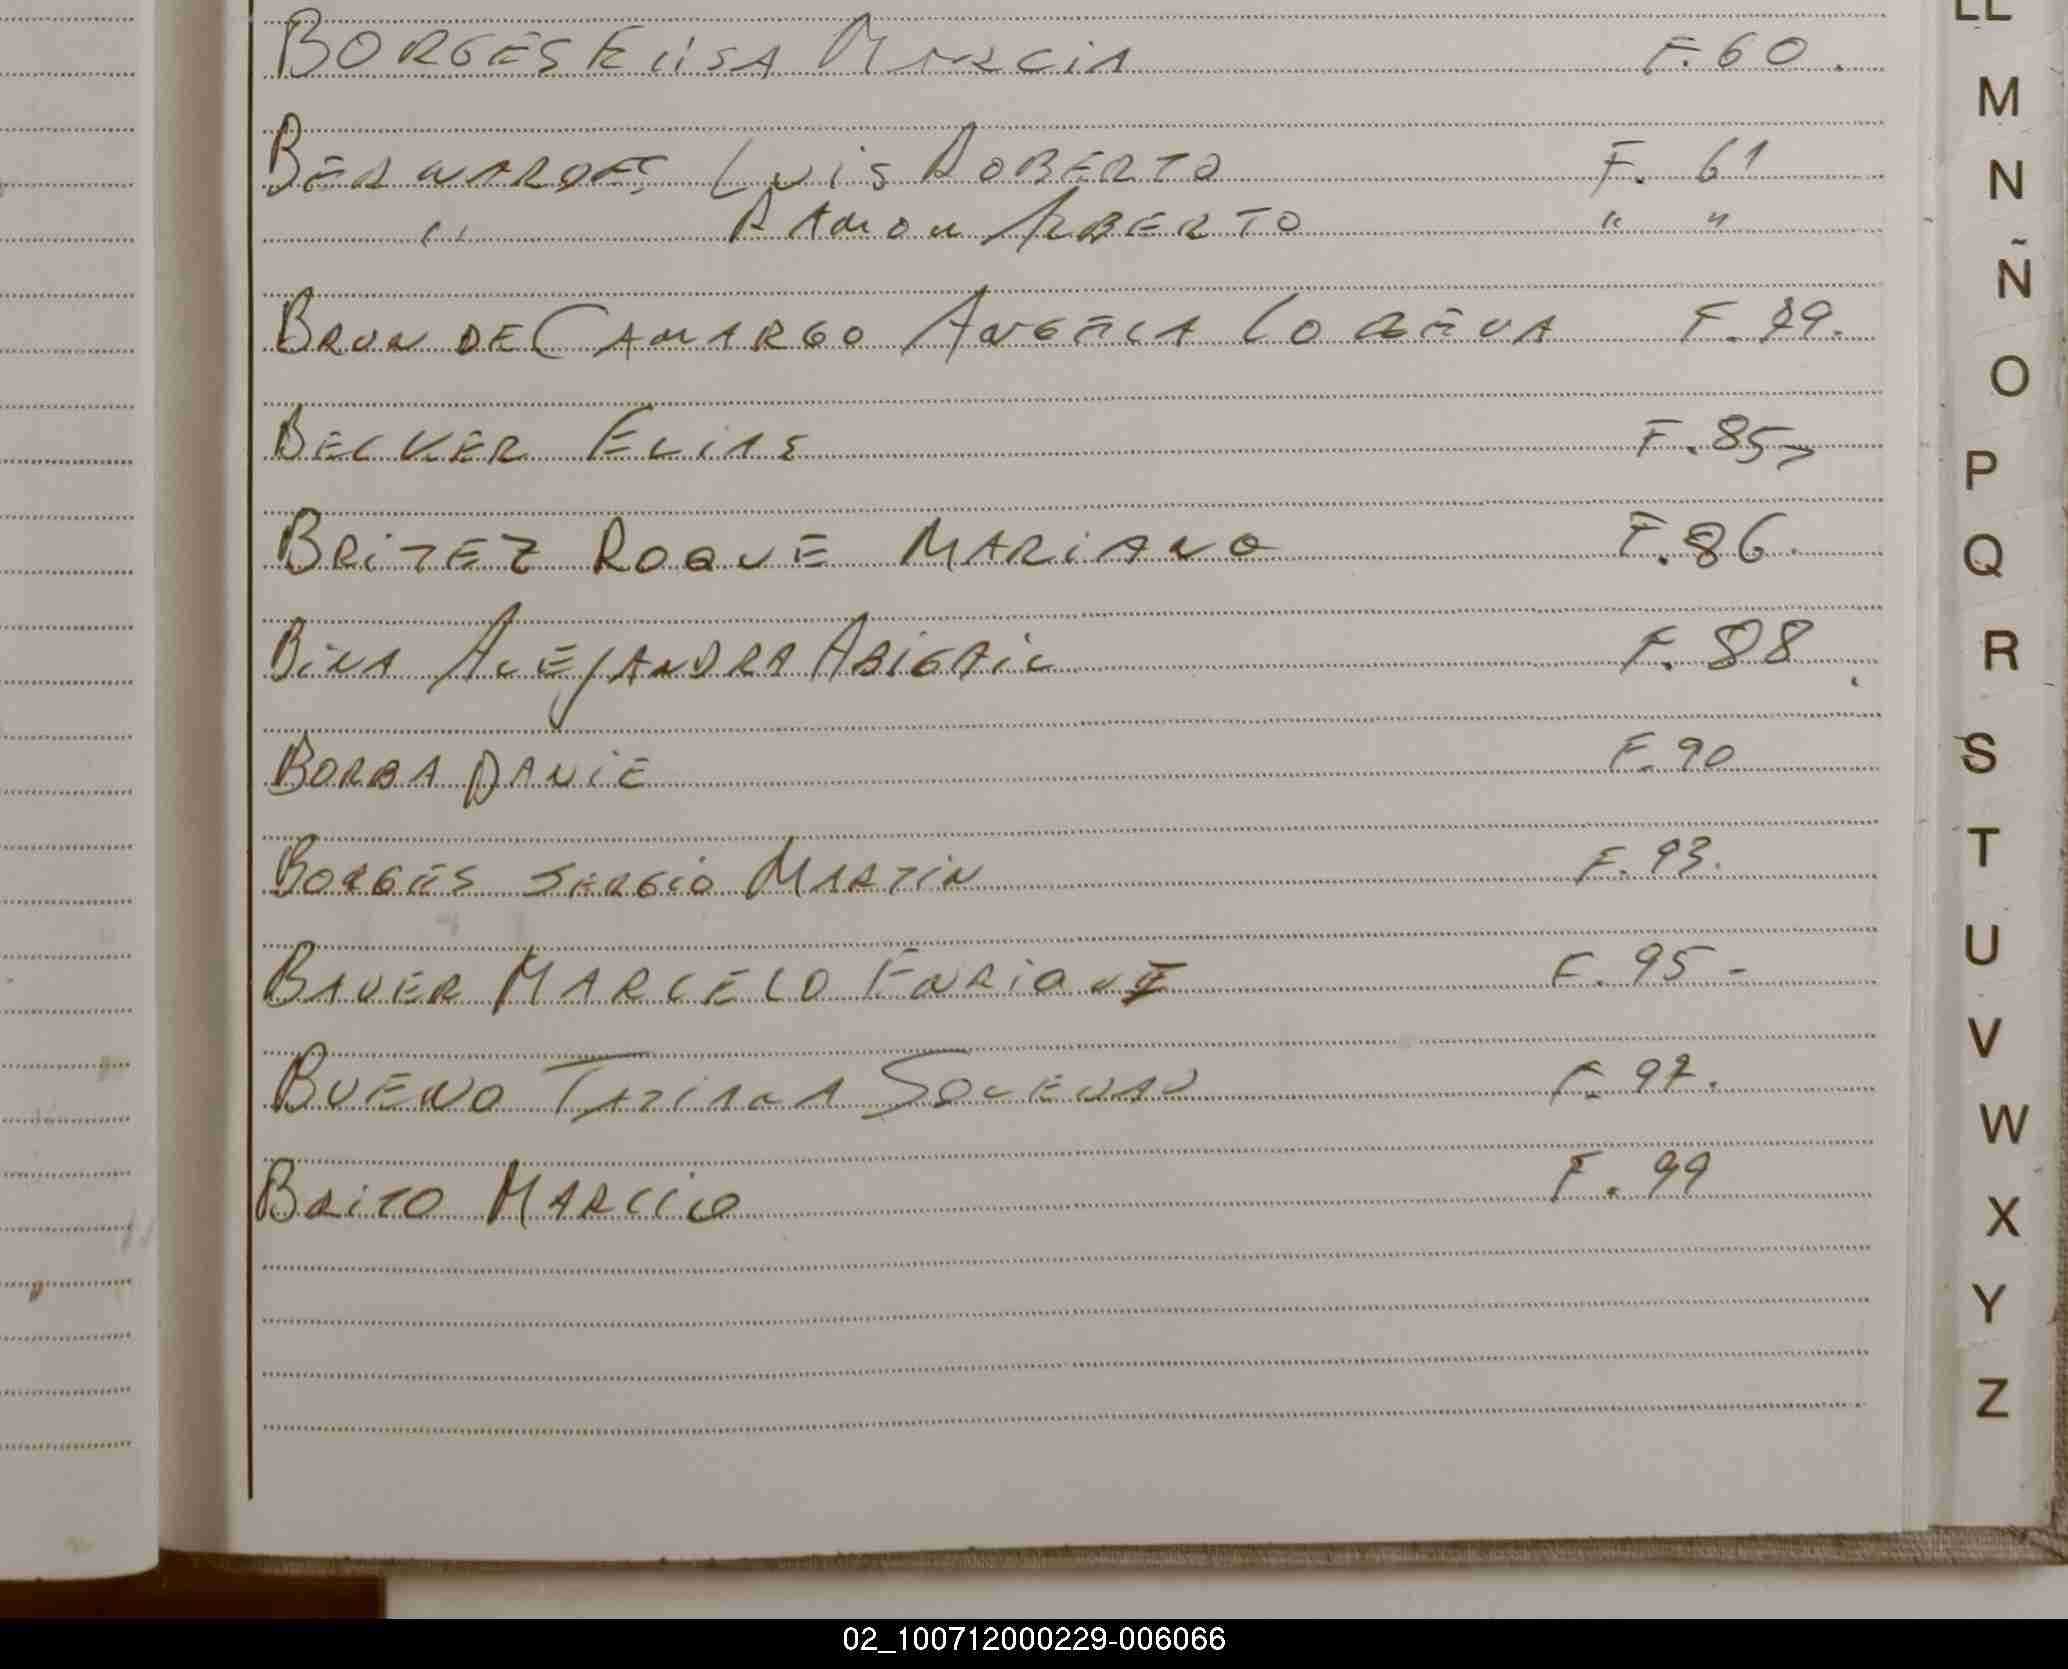 BORGES ELISA MARCIA F.60.
BERNARDES LUIS ROBERTO F. 61
" RAMON ALBERTO " "
BRUN DE CAMARGO ANGELA F.79.
BECKER ELIAS F.85
BRITEZ ROQUE MARIANO F.86.
BINA ALEJANDRA ABIGAIL F.88.
BORBA DANIE F.90
BORGES SERGIO MARTIN F.93.
BAUER MARCELO ENRIQUE F.95-
BUENO TATIANA F.97.
BRITO MARCIO F.99
LL
M
N
Ñ
O
P
Q
R
S
T
U
V
W
X
Y
Z
02_100712000229-006066